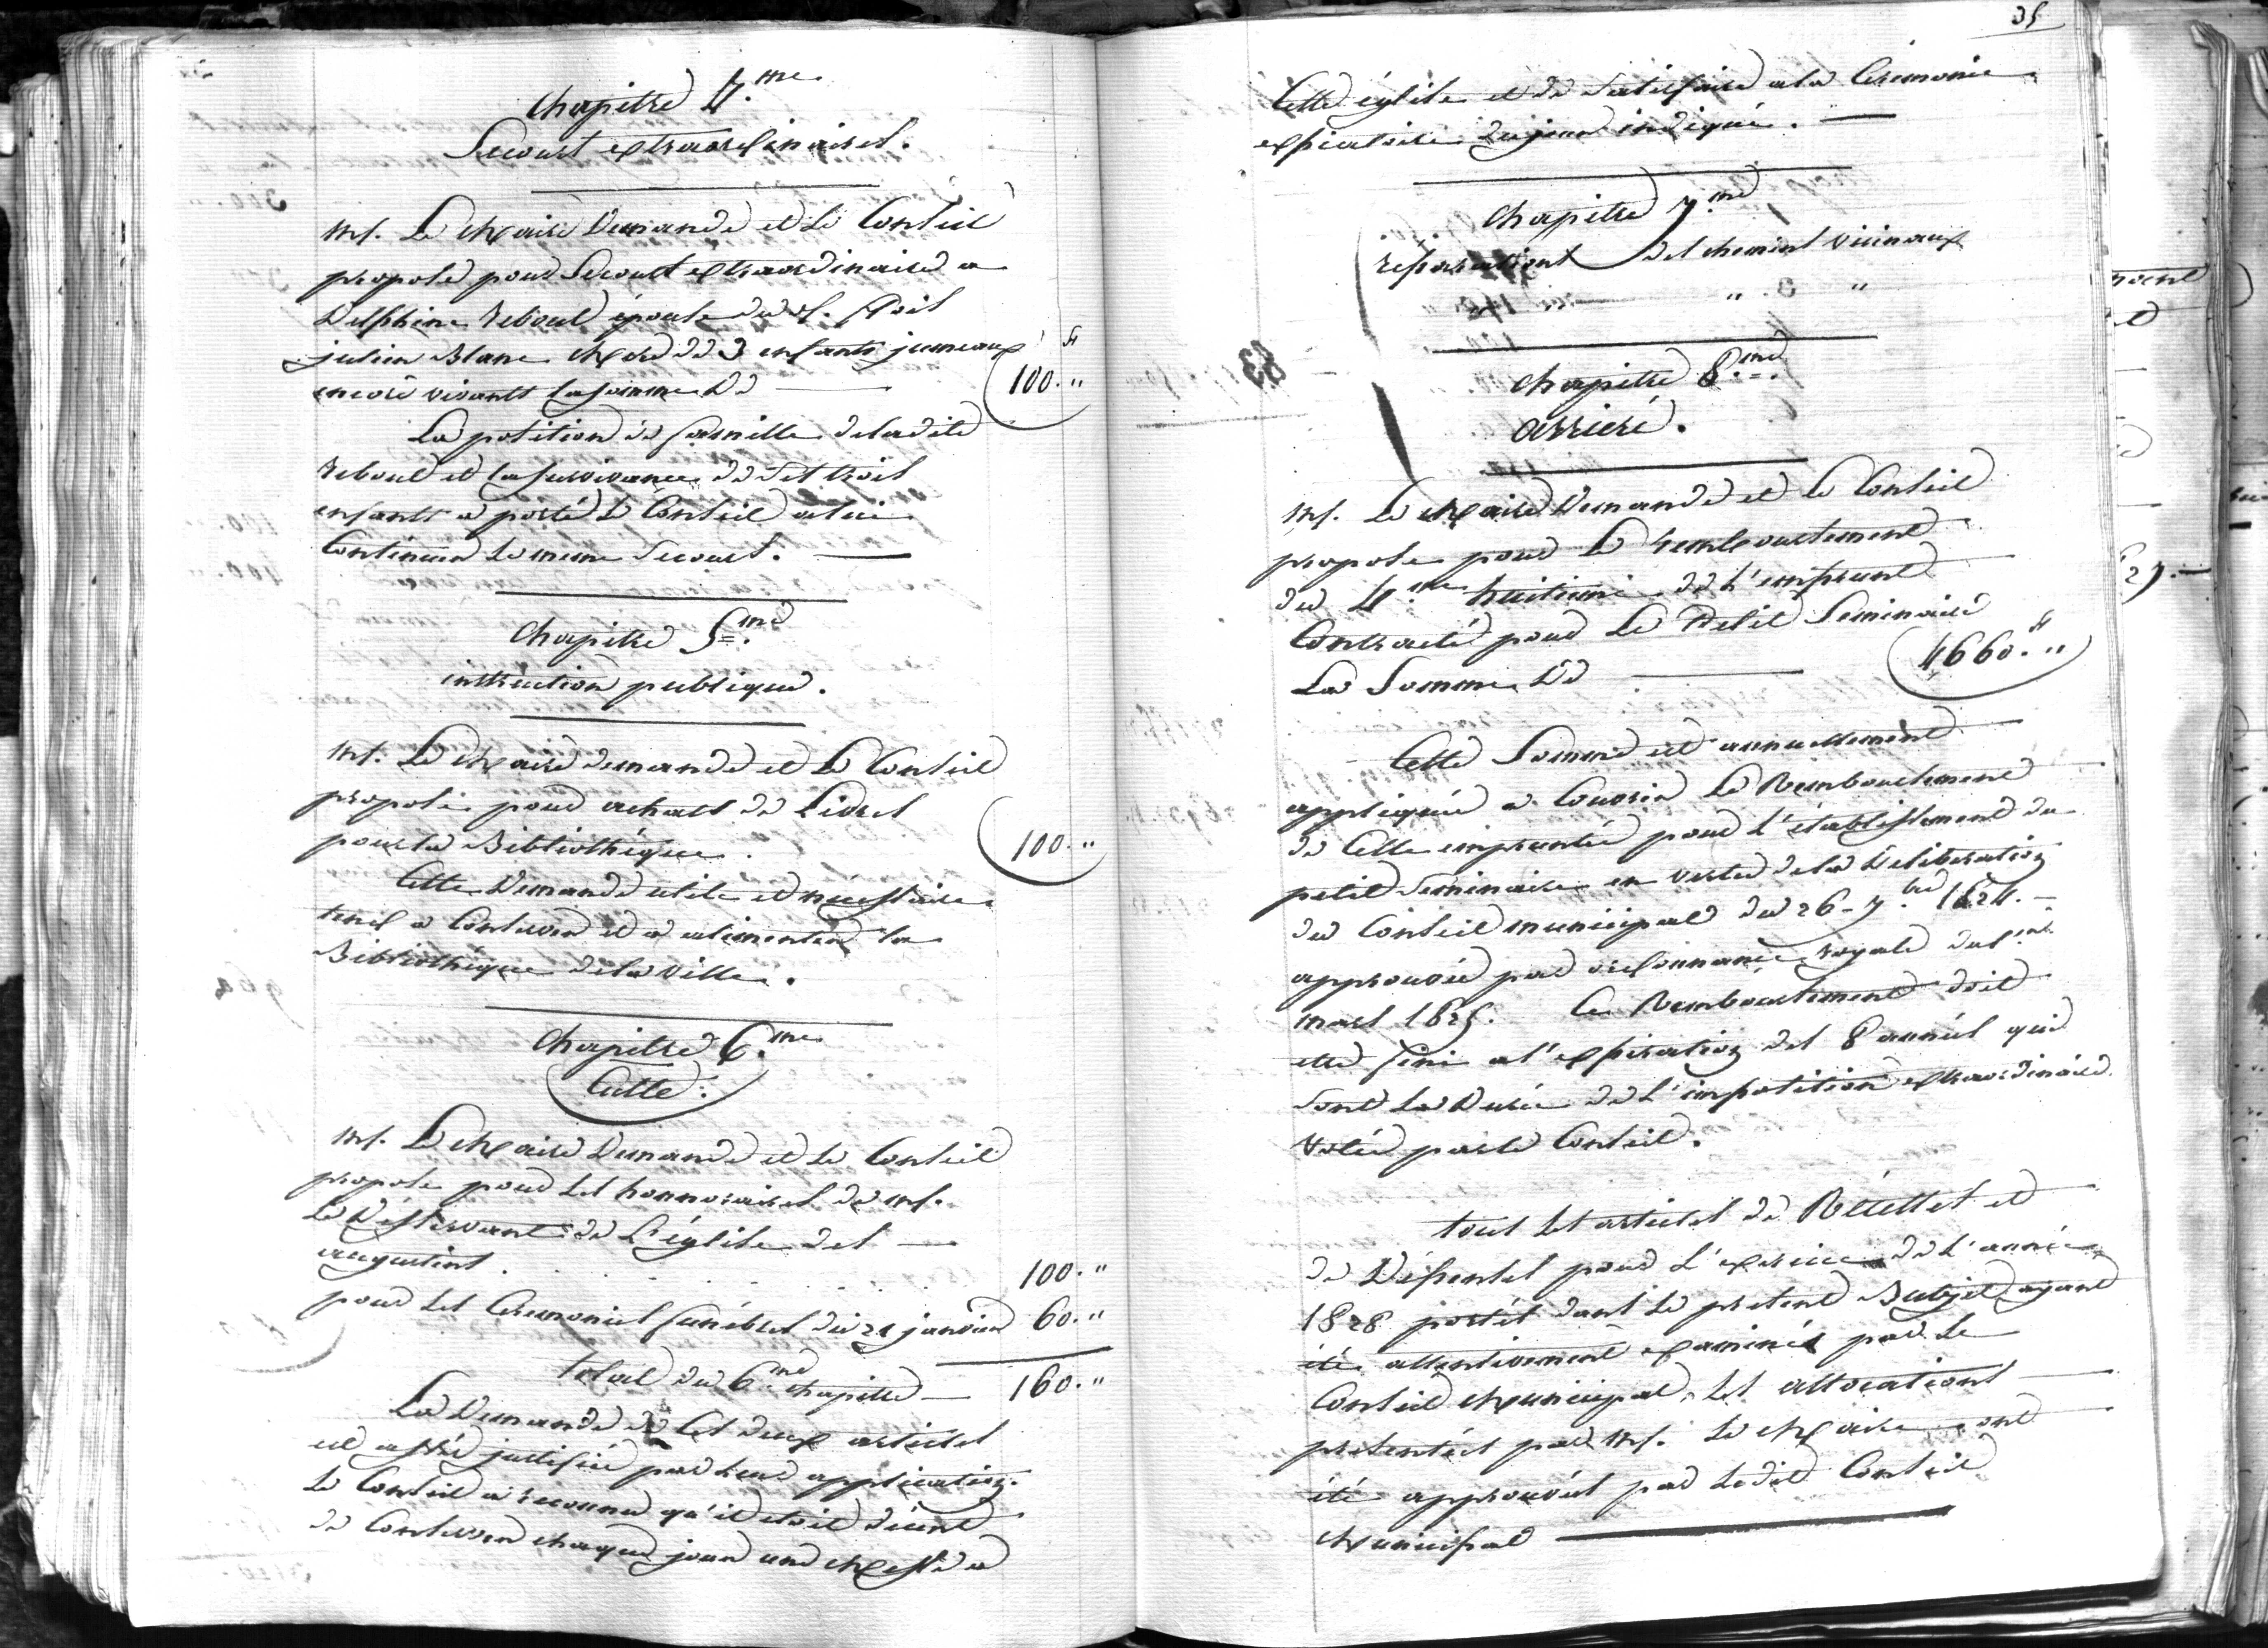 Chapitre 4.me
Secours extraordinaires.
Mr. Le Maire Demande et Le Conseil
propose pour Secours extraordinaire a
Delphine Reboul épouse du Sr.
julien Blanc Mere de 3 enfants jumeaux
encore vivants la somme De 100."
La position de famille de ladite
Reboul et la survivance de ses trois
enfants a porté Le Conseil a lui
Continuer Le meme Secours.
Chapitre 5.me
instruction publique.
Mr. Le Maire demande et Le Conseil
propose pour achats de Livres
pour la Bibliothéque. 100."
Cette Demande utile et nécessaire
tend a Conserver et a alimenter la
Bibliothéque de la Ville.
Chapitre 6.me
Culte.
Mr. Le Maire Demande et Le Conseil
propose pour les honnoraires de Mr.
Le Desservant de L'église des
augustins. 100."
pour les Ceremonies funébres du 21 janvier 60."
total du 6.me chapitre 160."
La Demande de Ces deux articles
est assés justifiée par leur application.
Le Conseil a reconnu qu'il etoit décent
de Conserver chaque jour une Messe a
35
Cette église et de Satisfaire a la Ceremonie
expiatoire du jour indiqué.
Chapitre 7.me
reparations des chemins vicinaux
" " "
Chapitre 8.me
arrieré.
Mr. Le Maire Demande et Le Conseil
propose pour Le remboursement
du 4.me huitieme de L'emprunt
Contracté pour Le Petit Seminaire
La Somme De 4660."
Cette Somme est annuellement
appliquée a Couvrir Le Remboursement
de Celle empruntée pour L'établissement du
petit Seminaire en vertu de la Deliberation
du Conseil municipal du 26 7.bre 1824.
approuvée par ordonnance royale du
mars 1825. Ce Remboursement doit
etre fini a l'expiration des 8 années qui
sont La Durée de L'imposition extraordinaire
Votée par le Conseil.
tous Les articles de Recettes et
de Dépenses pour L'exercice de L'année
1828 portés dans Le present Budjet ayant
été attentivement examinés par Le
Conseil Municipal, Les allocations
presentées par Mr. Le Maire ont
été approuvées par Ledit Conseil
Municipal